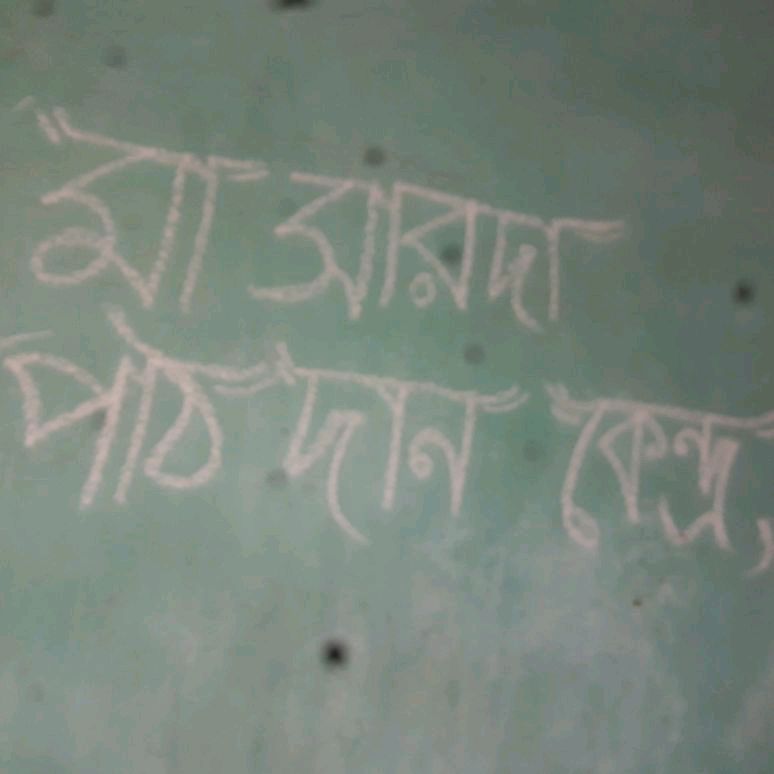 মা সারদা
পাঠ দান কেন্দ্র,